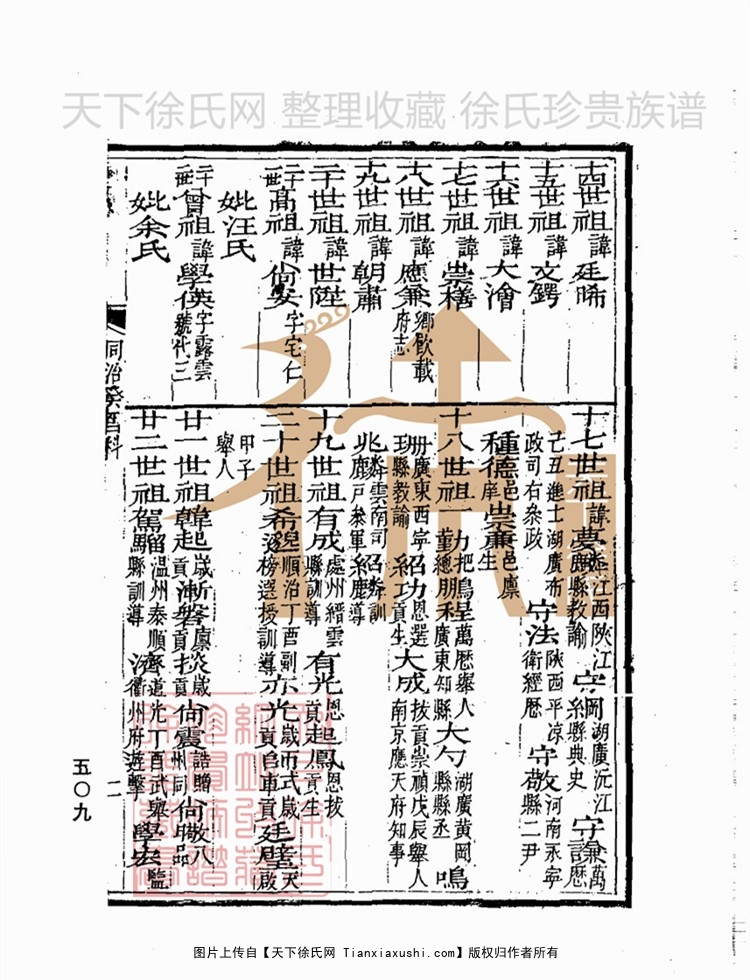 天下徐氏网 整理收藏 徐氏珍贵族谱
十四世祖諱廷晞
十五世祖諱文鍔
十六世祖諱大澮
十七世祖諱崇
十八世祖諱應兼鄉飲載府志
十九世祖諱朝肅
二十世祖諱世陞
二十一世高祖諱尙安字宅仁
妣汪氏
二十二世曾祖諱學僙字露雲號代三
妣余氏
十七世祖諱夢 江西陝江縣教諭 守岡湖廣沅江縣典史 守謙萬曆
己丑進士湖廣布政司右叅政 守法陝西平凉衛經歷 守敎河南永寧縣二尹
種德邑庠 崇藨邑廪生
十八世祖一 把總 鵬程萬曆舉人廣東知縣 大勺湖廣黃岡縣縣丞 鳴
珊廣東西寧縣教諭 紹功恩選貢生 大成拔貢崇禎戊辰舉人南京應天府知事
兆麟雲南司 紹麟訓導
十九世祖有成處州縉雲縣訓導 有光恩貢 起鳳恩拔貢生
二十世祖希 順治丁酉副榜選授訓導 亦光歲貢 而式歲貢 廷璧天啟
甲子舉人
廿一世祖 起歲貢 漸磐廪貢 炎歲貢 尙震誥贈州同 尙 八品
廿二世祖駕騮温州泰順縣訓導 道光丁酉武舉衢州府遊擊 學宏監
同治癸酉科
二
五〇九
图片上传自【天下徐氏网 Tianxiaxushi.com】版权归作者所有